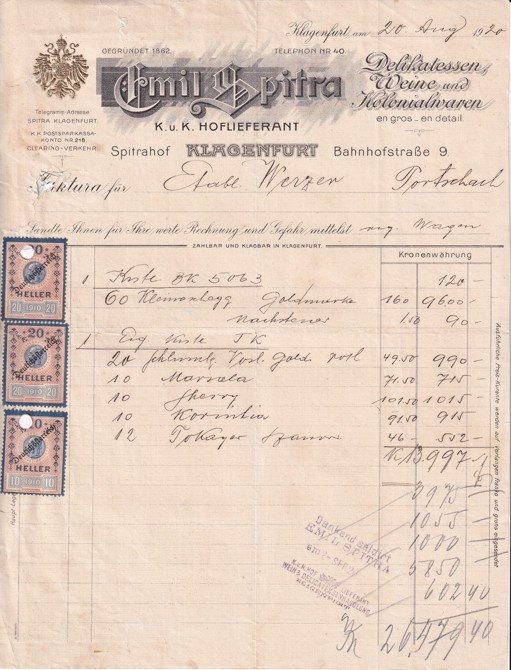 Klagenfurt, am 20 Aug 1920
GEGRÜNDET 1862. TELEPHON NR. 40
Emil Spitra
K. u. K. HOFLIEFERANT
Delikatessen,
Weine und
Kolonialwaren
en gros _ en detail.
Telegramm-Adresse
SPITRA KLAGENFURT.
K. K. POSTSPARKASSA-
KONTO NR. 218.
CLEARING-VERKEHR.
Spitrahof KLAGENFURT Bahnhofstraße 9.
Faktura für Etabl. Werzer Pörtschach
Sandte Ihnen für Ihre werte Rechnung und Gefahr, mittelst Wagen
ZAHLBAR UND KLAGBAR IN KLAGENFURT.
Kronenwährung
1 Kiste BK 5063 120 –
60 Goldmarke 160 9600 –
90 –
1 Kiste JK
20 Gold 49.50 990 –
10 Marsala 71.50 715 –
10 Sherry 101.50 1015 –
10 91.50 915
12 Tokayer 46 – 552 –
K 13.997 –
3975 –
1055 –
1000 –
5850
602 40
26.479 40
20 HELLER 20 1910 20
Deutschösterreich
20 HELLER 20 1910 20
Deutschösterreich
10 HELLER 10 1910 10
Deutschösterreich
Dankend saldirt
EMIL SPITRA
Ausführliche Preis-Kurante werden auf Verlangen franko und gratis eingesendet